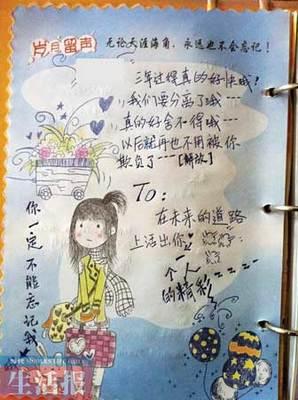 岁月留声
无论天涯海角，永远也不会忘记！
三年过得真的好快哦！
我们要分离了哦……
真的好舍不得哦……
以后就再也不用被你
欺负了……【解放】
To：
在未来的道路
上活出你
一个人
的精彩
你一定不能忘记我
生活报